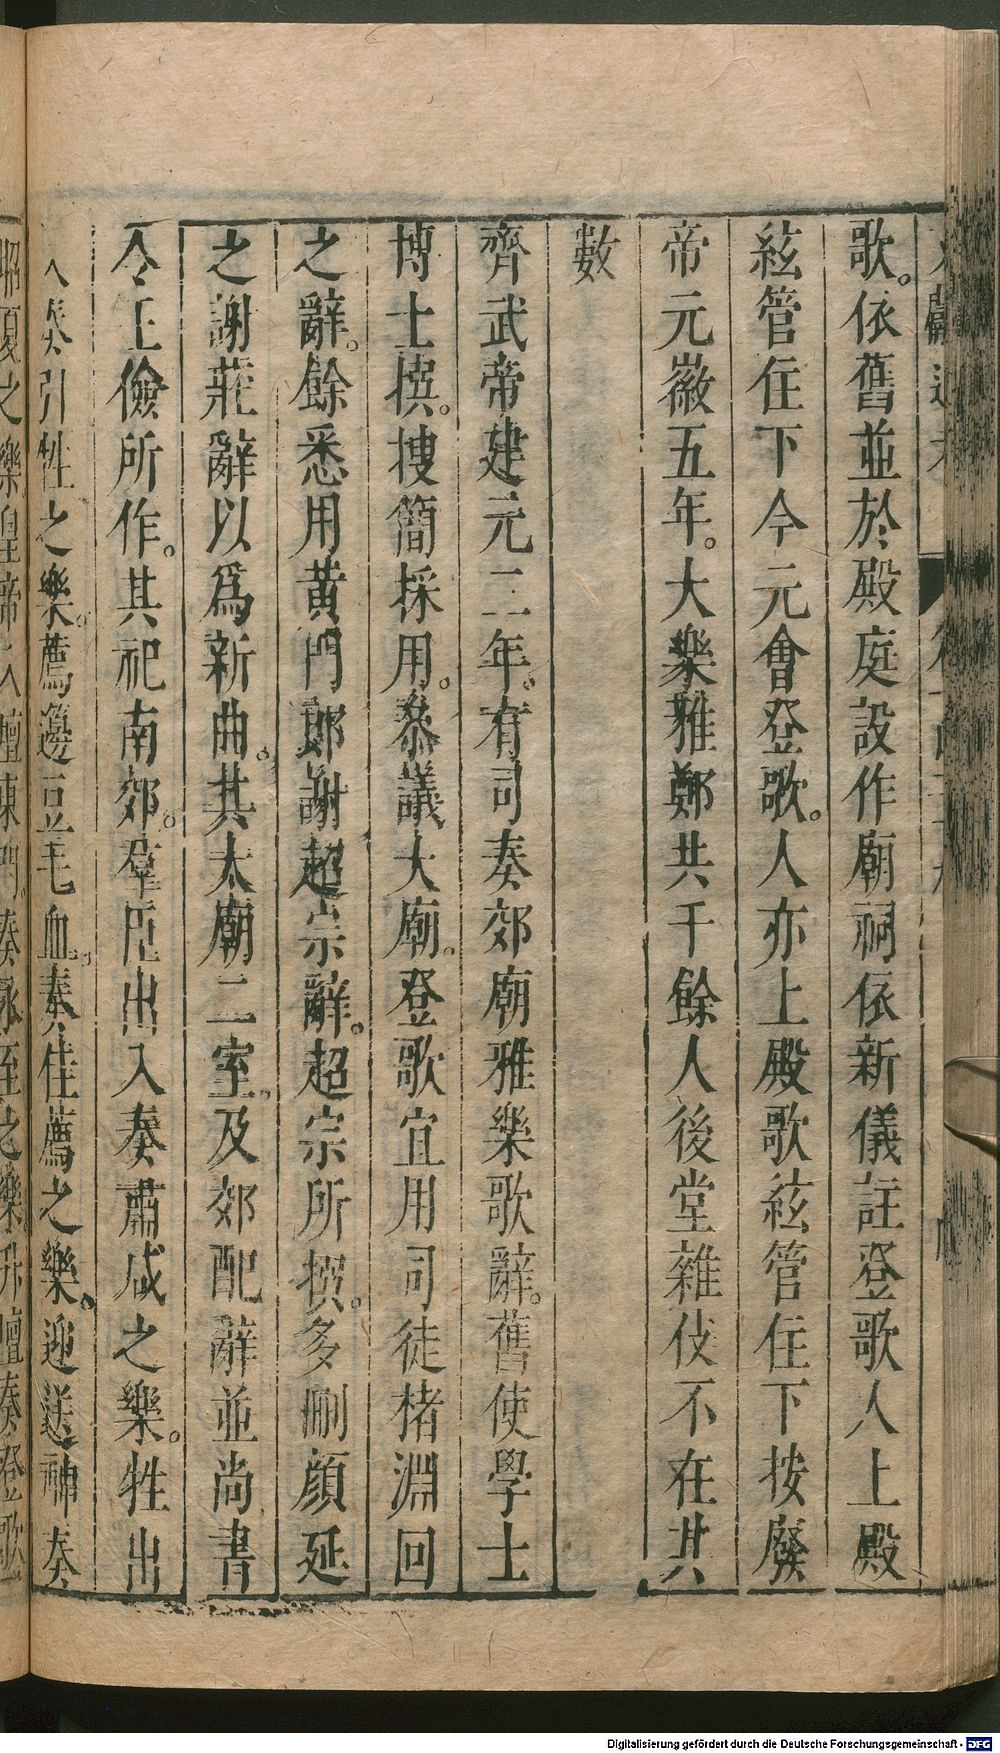 歌。依舊並於殿庭設作廟祠依新儀註登歌人上殿
絃管在下今元會登歌。人亦上殿歌絃管住下按廢
帝元徽五年。大樂雅鄭共千餘人後堂雜伎不在其
數
齊武帝建元二年。有司奏郊廟雅樂歌辭。舊使學士
博士撰。搜簡採用。恭議大廟。登歌宜用司徒楮淵回
之辭。餘悉用黃門郎謝超宗辭。超宗所撰。多刪顏延
之謝莊辭以爲新曲。其太廟二室。及郊配辭並尚書
令王儉所作。其祀南郊。羣臣出入奏肅咸之樂。牲出
入奏引牲之樂。薦籩豆毛血。奏佳薦之樂。迎送神奏
昭夏之樂皇帝入壇東門。奏永至之樂升壇奏登歌
Digitalisierung gefördert durch die Deutsche Forschungsgemeinschaft - DFG